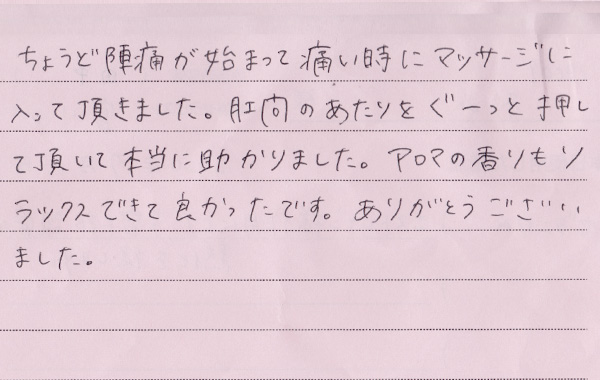 ちょうど陣痛が始まって痛い時にマッサージに
入って頂きました。肛門のあたりをぐーっと押し
て頂いて本当に助かりました。アロマの香りもリ
ラックスできて良かったです。ありがとうござい
ました。